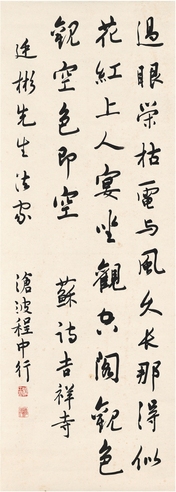 過眼榮枯電与風久长那得似
花紅上人宴坐觀空閣觀色
觀空色即空 蘇詩吉祥寺
廷彬先生法家 滄波程中行